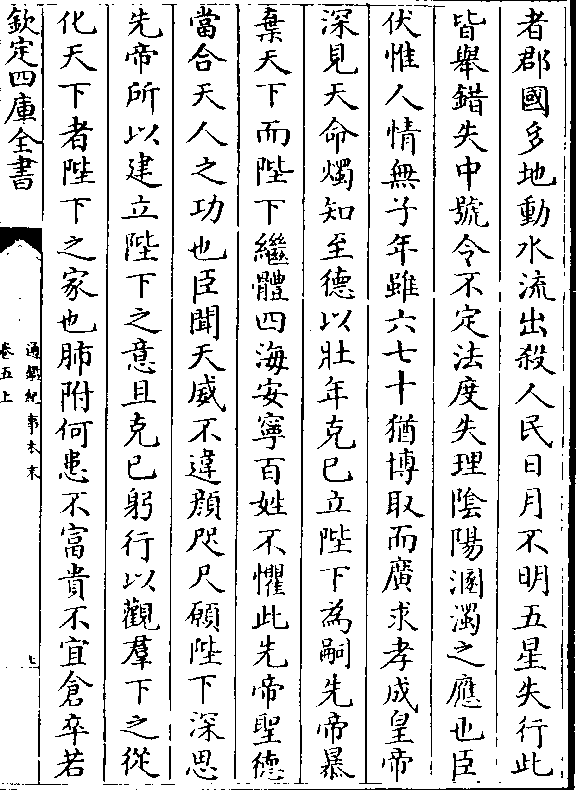 者郡國多地動水流出殺人民日月不明五星失行此
皆舉錯失中號令不定法度失理陰陽溷濁之應也臣
伏惟人情無子年雖六七十猶博取而廣求孝成皇帝
深見天命燭知至德以壯年克己立陛下為嗣先帝暴
棄天下而陛下繼體四海安寧百姓不懼此先帝聖德
當合天人之功也臣聞天威不違顔咫尺願陛下深思
先帝所以建立陛下之意且克己躬行以觀羣下之從
化天下者陛下之家也肺附何患不富貴不宜倉卒若
欽定四庫全書
通鑑紀事本末
卷五上